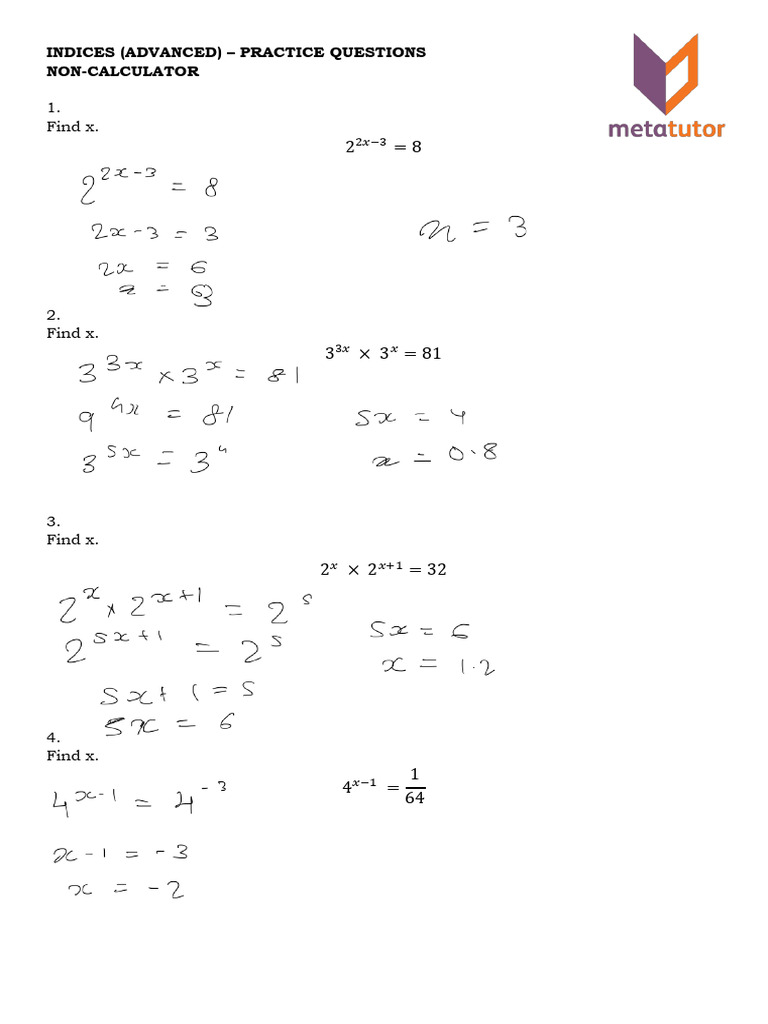 INDICES (ADVANCED) – PRACTICE QUESTIONS
NON-CALCULATOR
metatutor
1.
Find x.
2^{2x−3} = 8
2^{2x−3} = 8
2x−3 = 3
2x = 6
x = 3
x = 3
2.
Find x.
3^{3x} × 3^{x} = 81
3^{3x} × 3^{x} = 81
9^{4x} = 81
3^{5x} = 3^{4}
5x = 4
x = 0.8
3.
Find x.
2^{x} × 2^{x+1} = 32
2^{x} × 2^{x+1} = 2^{5}
2^{5x+1} = 2^{5}
5x+1 = 5
5x = 6
5x = 6
x = 1.2
4.
Find x.
4^{x−1} = 1/64
4^{x−1} = 4^{−3}
x−1 = −3
x = −2